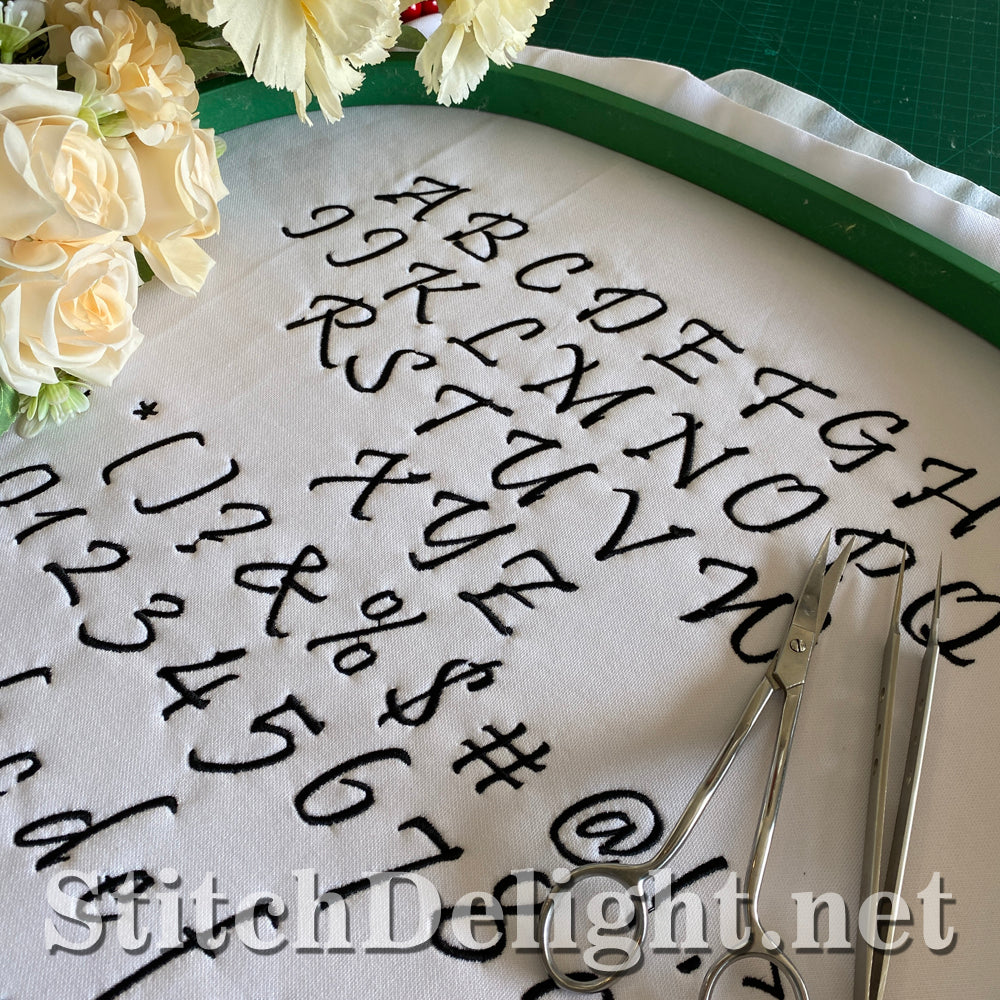 A B C D E F G H
I J K L M N O P Q
R S T U V W
X Y Z
* ( ) ? & % $ # @ !
0 1 2 3 4 5 6 7 8
c d
StitchDelight.net